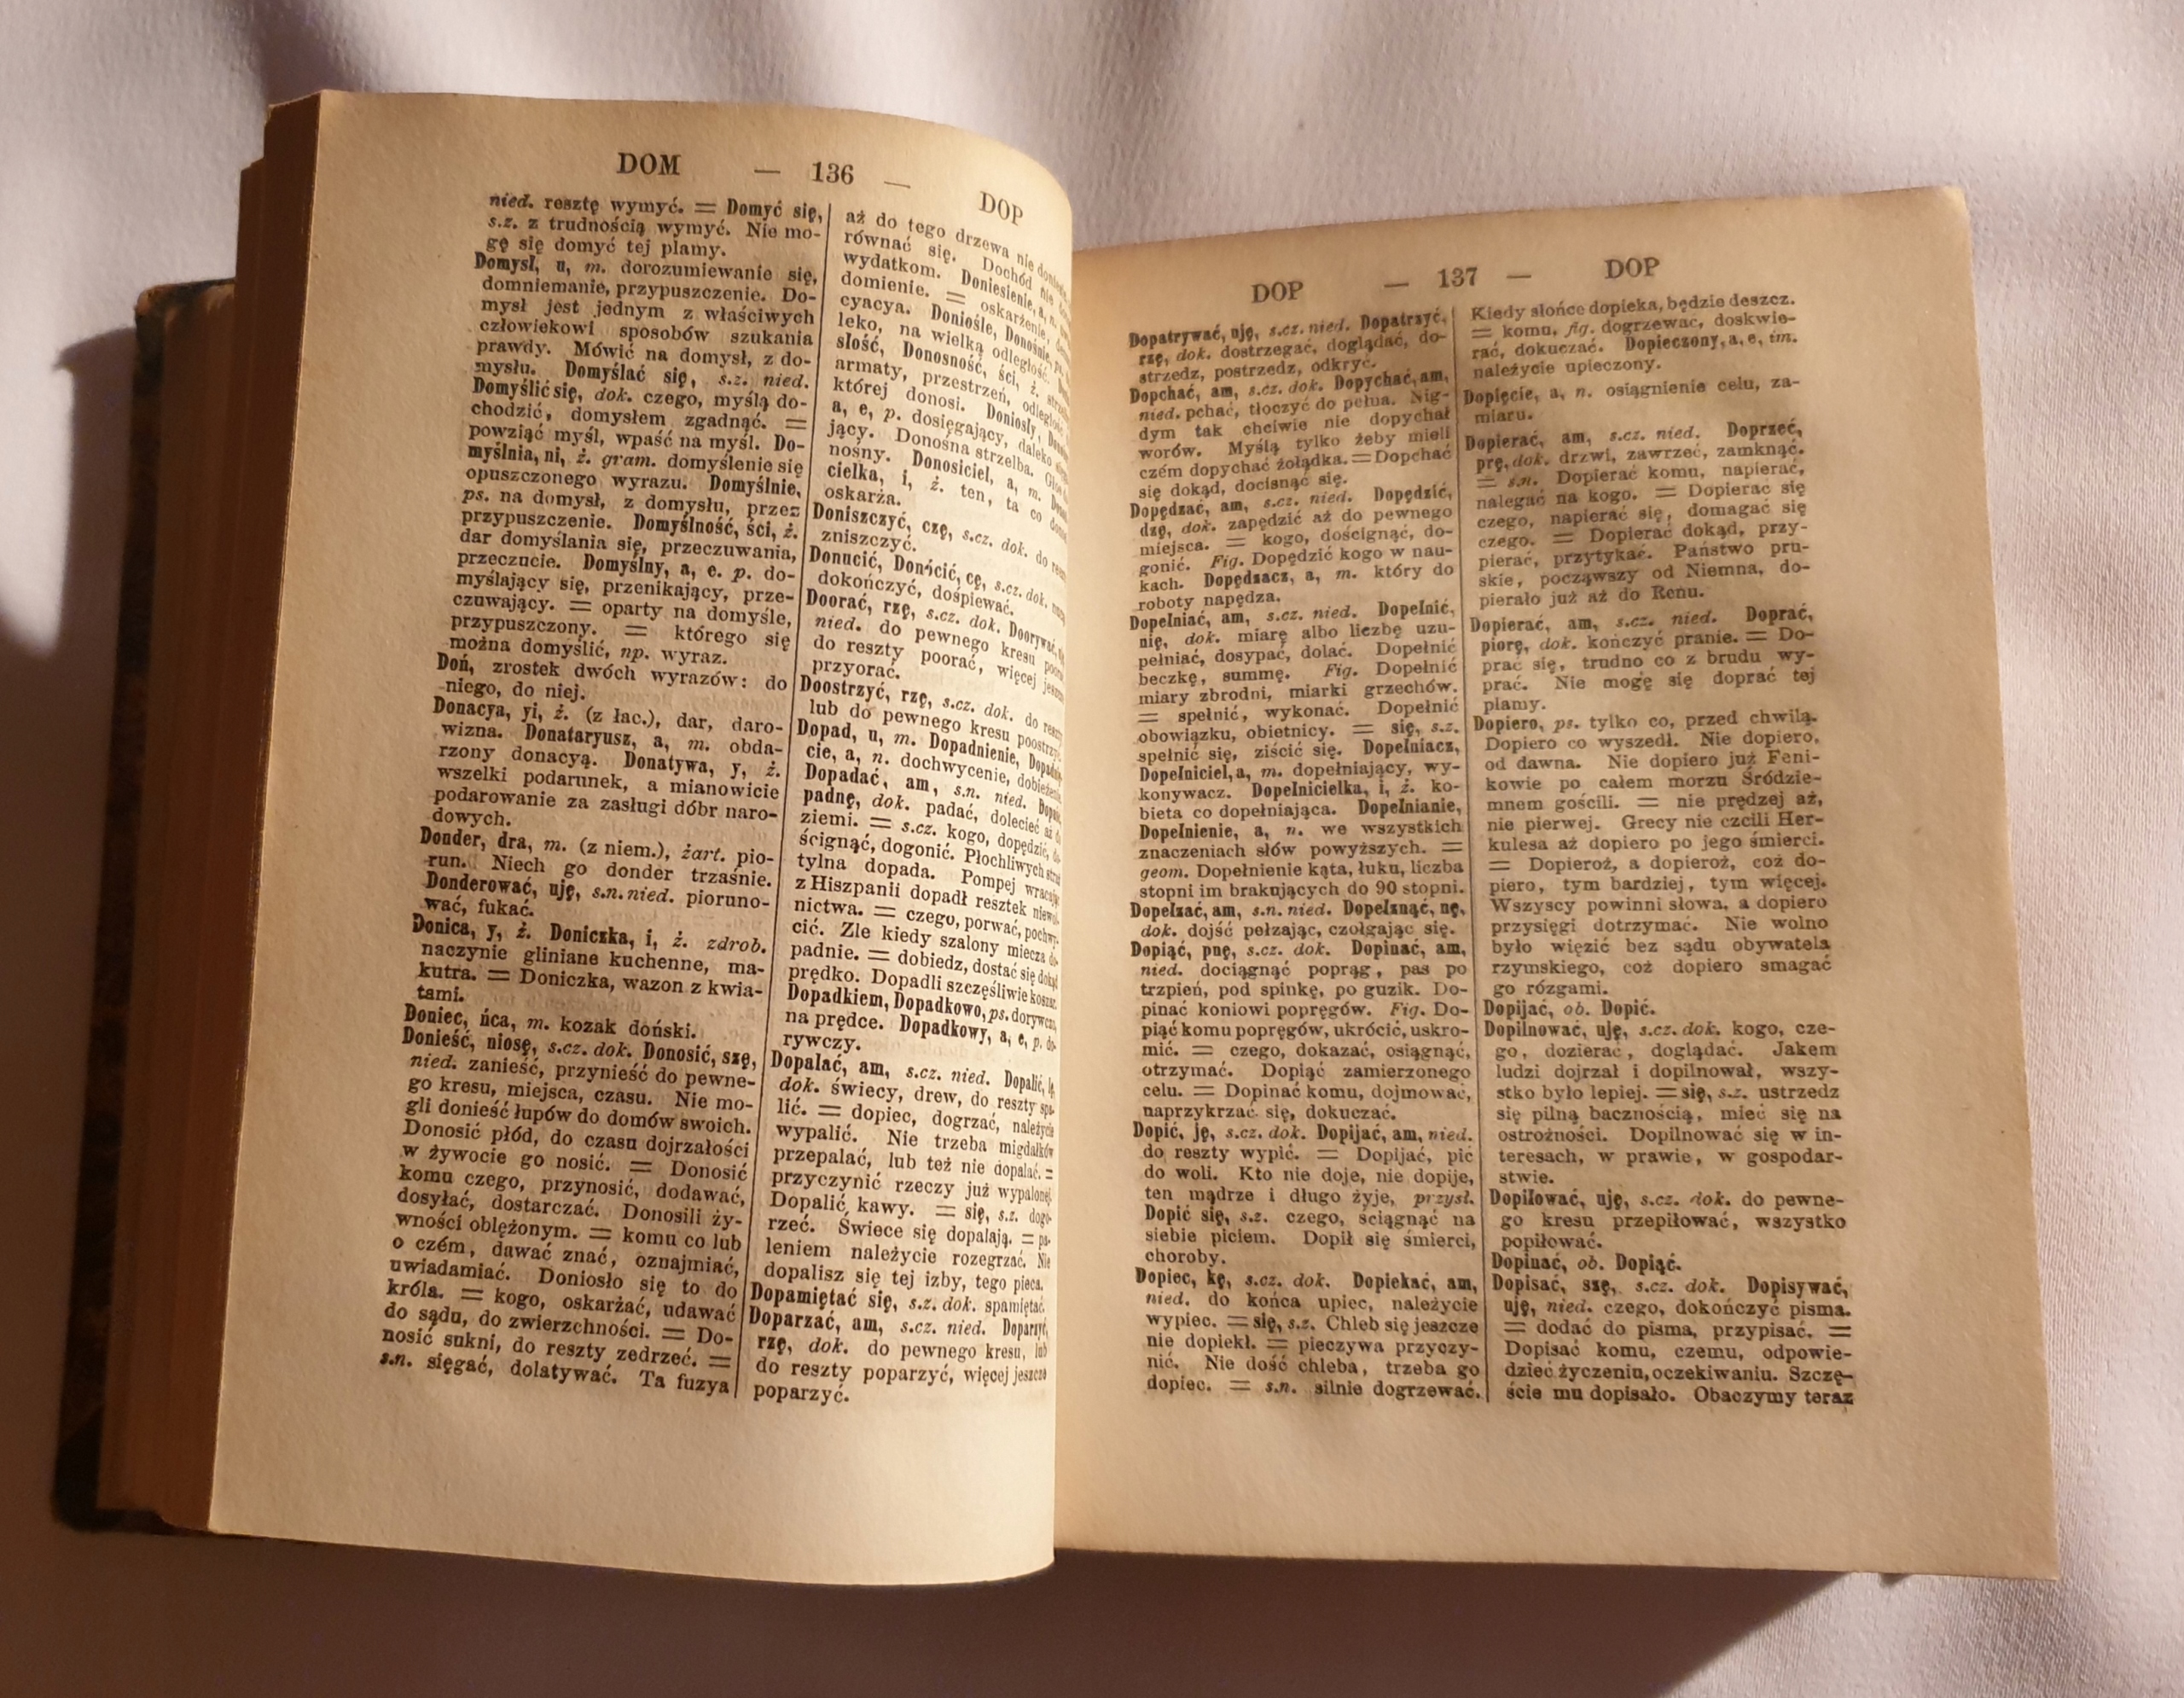 DOM — 136 — DOP
nied. resztę wymyć. = Domyć się,
s.z. z trudnością wymyć. Nie mo-
gę się domyć tej plamy.
Domysł, u, m. dorozumiewanie się,
domniemanie, przypuszczenie. Do-
mysł jest jednym z właściwych
człowiekowi sposobów szukania
prawdy. Mówić na domysł, z do-
mysłu. Domyślać się, s.z. nied.
Domyślić się, dok. czego, myślą do-
chodzić, domysłem zgadnąć. =
powziąć myśl, wpaść na myśl. Do-
myślnia, ni, ż. gram. domyślenie się
opuszczonego wyrazu. Domyślnie,
ps. na domysł, z domysłu, przez
przypuszczenie. Domyślność, ści, ż.
dar domyślania się, przeczuwania,
przeczucie. Domyślny, a, e. p. do-
myślający się, przenikający, prze-
czuwający. = oparty na domyśle,
przypuszczony. = którego się
można domyślić, np. wyraz.
Doń, zrostek dwóch wyrazów: do
niego, do niej.
Donacya, yi, ż. (z łac.), dar, daro-
wizna. Donataryusz, a, m. obda-
rzony donacyą. Donatywa, y, ż.
wszelki podarunek, a mianowicie
podarowanie za zasługi dóbr naro-
dowych.
Donder, dra, m. (z niem.), żart. pio-
run. Niech go donder trzaśnie.
Donderować, uję, s.n. nied. pioruno-
wać, fukać.
Donica, y, ż. Doniczka, i, ż. zdrob.
naczynie gliniane kuchenne, ma-
kutra. = Doniczka, wazon z kwia-
tami.
Doniec, ńca, m. kozak doński.
Donieść, niosę, s.cz. dok. Donosić, szę,
nied. zanieść, przynieść do pewne-
go kresu, miejsca, czasu. Nie mo-
gli donieść łupów do domów swoich.
Donosić płód, do czasu dojrzałości
w żywocie go nosić. = Donosić
komu czego, przynosić, dodawać,
dosyłać, dostarczać. Donosili ży-
wności oblężonym. = komu co lub
o czém, dawać znać, oznajmiać,
uwiadamiać. Doniosło się to do
króla. = kogo, oskarżać, udawać
do sądu, do zwierzchności. = Do-
nosić sukni, do reszty zedrzeć. =
s.n. sięgać, dolatywać. Ta fuzya
aż do tego drzewa nie
równać się. Dochód nie
wydatkom. Doniesienie, a, n.
domienie. = oskarżenie,
cyacya. Doniośle, Donośnie,
leko, na wielką odległość.
słość, Donosność, ści, ż.
armaty, przestrzeń, odległość,
której donosi. Doniosły,
a, e, p. dosięgający, daleko
jący. Donośna strzelba.
nośny. Donosiciel, a, m.
cielka, i, ż. ten, ta co
oskarża.
Doniszczyć, czę, s.cz. dok. do
zniszczyć.
Donucić, cę, s.cz. dok.
dokończyć, dośpiewać.
Doorać, rzę, s.cz. dok. Doorywać,
nied. do pewnego kresu
do reszty poorać, więcej jeszcze
przyorać.
Doostrzyć, rzę, s.cz. dok. do reszty
lub do pewnego kresu poostrzyć.
Dopad, u, m. Dopadnienie,
cie, a, n. dochwycenie, dobieżenie.
Dopadać, am, s.n. nied.
padnę, dok. padać, dolecieć aż do
ziemi. = s.cz. kogo, dopędzić, do-
ścignąć, dogonić. Płochliwych
tylna dopada. Pompej wracając
z Hiszpanii dopadł resztek niewol-
nictwa. = czego, porwać, pochwy-
cić. Zle kiedy szalony miecza do-
padnie. = dobiedz, dostać się dokąd
prędko. Dopadli szczęśliwie koszar.
Dopadkiem, Dopadkowo, ps. dorywczo,
na prędce. Dopadkowy, a, e, p. do-
rywczy.
Dopalać, am, s.cz. nied. Dopalić, lę,
dok. świecy, drew, do reszty spa-
lić. = dopiec, dogrzać, należycie
wypalić. Nie trzeba migdałków
przepalać, lub też nie dopalać. =
przyczynić rzeczy już wypalonej.
Dopalić kawy. = się, s.z. dogo-
rzeć. Świece się dopalają. = pa-
leniem należycie rozegrzać. Nie
dopalisz się tej izby, tego pieca.
Dopamiętać się, s.z. dok. spamiętać.
Doparzać, am, s.cz. nied. Doparzyć,
rzę, dok. do pewnego kresu, lub
do reszty poparzyć, więcej jeszcze
poparzyć.
DOP — 137 — DOP
Dopatrywać, uję, s.cz. nied. Dopatrzyć,
rzę, dok. dostrzegać, doglądać, do-
strzedz, postrzedz, odkryć.
Dopchać, am, s.cz. dok. Dopychać, am,
nied. pchać, tłoczyć do pełna. Nig-
dym tak chciwie nie dopychał
worów. Myślą tylko żeby mieli
czém dopychać żołądka. = Dopchać
się dokąd, docisnąć się.
Dopędzać, am, s.cz. nied. Dopędzić,
dzę, dok. zapędzić aż do pewnego
miejsca. = kogo, doścignąć, do-
gonić. Fig. Dopędzić kogo w nau-
kach. Dopędzacz, a, m. który do
roboty napędza.
Dopełniać, am, s.cz. nied. Dopełnić,
nię, dok. miarę albo liczbę uzu-
pełniać, dosypać, dolać. Dopełnić
beczkę, summę. Fig. Dopełnić
miary zbrodni, miarki grzechów.
= spełnić, wykonać. Dopełnić
obowiązku, obietnicy. = się, s.z.
spełnić się, ziścić się. Dopełniacz,
Dopełniciel, a, m. dopełniający, wy-
konywacz. Dopełnicielka, i, ż. ko-
bieta co dopełniająca. Dopełnianie,
Dopełnienie, a, n. we wszystkich
znaczeniach słów powyższych. =
geom. Dopełnienie kąta, łuku, liczba
stopni im brakujących do 90 stopni.
Dopełzać, am, s.n. nied. Dopełznąć, nę,
dok. dojść pełzając, czołgając się.
Dopiąć, pnę, s.cz. dok. Dopinać, am,
nied. dociągnąć poprąg, pas po
trzpień, pod spinkę, po guzik. Do-
pinać koniowi popręgów. Fig. Do-
piąć komu popręgów, ukrócić, uskro-
mić. = czego, dokazać, osiągnąć,
otrzymać. Dopiąć zamierzonego
celu. = Dopinać komu, dojmować,
naprzykrzać się, dokuczać.
Dopić, ję, s.cz. dok. Dopijać, am, nied.
do reszty wypić. = Dopijać, pić
do woli. Kto nie doje, nie dopije,
ten mądrze i długo żyje, przysł.
Dopić się, s.z. czego, ściągnąć na
siebie piciem. Dopił się śmierci,
choroby.
Dopiec, kę, s.cz. dok. Dopiekać, am,
nied. do końca upiec, należycie
wypiec. = się, s.z. Chleb się jeszcze
nie dopiekł. = pieczywa przyczy-
nić. Nie dość chleba, trzeba go
dopiec. = s.n. silnie dogrzewać.
Kiedy słońce dopieka, będzie deszcz.
= komu, fig. dogrzewać, doskwie-
rać, dokuczać. Dopieczony, a, e, im.
należycie upieczony.
Dopięcie, a, n. osiągnienie celu, za-
miaru.
Dopierać, am, s.cz. nied. Doprzeć,
prę, dok. drzwi, zawrzeć, zamknąć.
= s.n. Dopierać komu, napierać,
nalegać na kogo. = Dopierać się
czego, napierać się, domagać się
czego. = Dopierać dokąd, przy-
pierać, przytykać. Państwo pru-
skie, począwszy od Niemna, do-
pierało już aż do Renu.
Dopierać, am, s.cz. nied. Doprać,
piorę, dok. kończyć pranie. = Do-
prać się, trudno co z brudu wy-
prać. Nie mogę się doprać tej
plamy.
Dopiero, ps. tylko co, przed chwilą.
Dopiero co wyszedł. Nie dopiero,
od dawna. Nie dopiero już Feni-
kowie po całem morzu Śródzie-
mnem gościli. = nie prędzej aż,
nie pierwej. Grecy nie czcili Her-
kulesa aż dopiero po jego śmierci.
= Dopieroż, a dopieroż, coż do-
piero, tym bardziej, tym więcej.
Wszyscy powinni słowa, a dopiero
przysięgi dotrzymać. Nie wolno
było więzić bez sądu obywatela
rzymskiego, coż dopiero smagać
go rózgami.
Dopijać, ob. Dopić.
Dopilnować, uję, s.cz. dok. kogo, cze-
go, dozierać, doglądać. Jakem
ludzi dojrzał i dopilnował, wszy-
stko było lepiej. = się, s.z. ustrzedz
się pilną bacznością, mieć się na
ostrożności. Dopilnować się w in-
teresach, w prawie, w gospodar-
stwie.
Dopiłować, uję, s.cz. dok. do pewne-
go kresu przepiłować, wszystko
popiłować.
Dopinać, ob. Dopiąć.
Dopisać, szę, s.cz. dok. Dopisywać,
uję, nied. czego, dokończyć pisma.
= dodać do pisma, przypisać. =
Dopisać komu, czemu, odpowie-
dzieć życzeniu, oczekiwaniu. Szczę-
ście mu dopisało. Obaczymy teraz